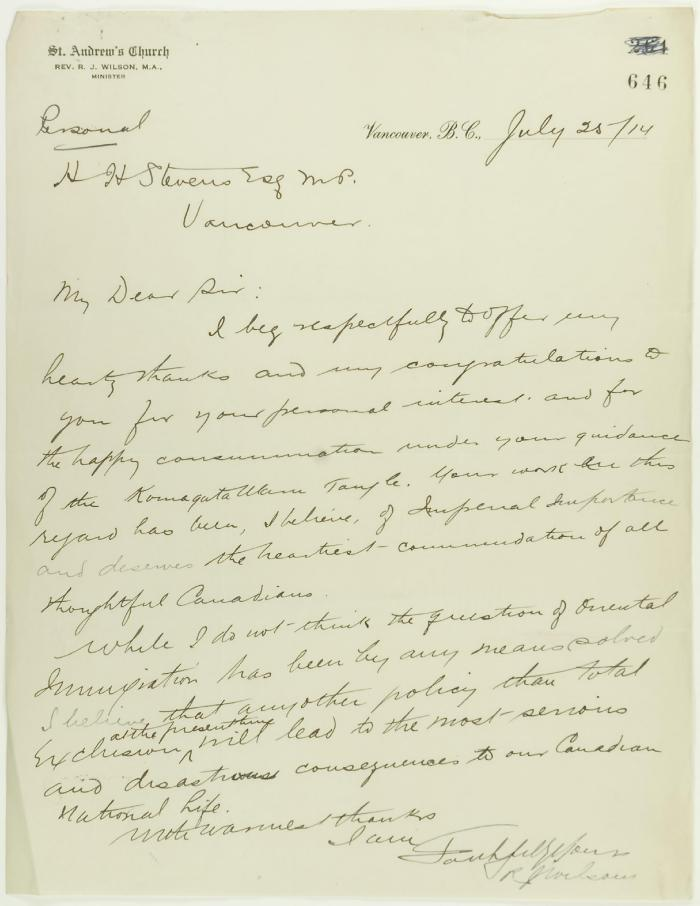 St. Andrew's Church
REV. R. J. WILSON, M.A.,
MINISTER
646
Personal
Vancouver, B.C., July 25/14
H H Stevens Esq M.P.
Vancouver.
My Dear Sir:
I beg respectfully to offer my
hearty thanks and my congratulations to
you for your personal interest. and for
the happy consummation under your guidance
of the Komagata Maru Tangle. Your work in this
regard has been, I believe, of Imperial Importance
and deserves the heartiest commendation of all
thoughtful Canadians.
While I do not think the question of Oriental
Immigration has been by any means solved
I believe that any other policy than total
at the present time
Exclusion ^ will lead to the most serious
and disastrous consequences to our Canadian
National Life.
With warmest thanks
I am
Faithfully Yours
R J Wilson